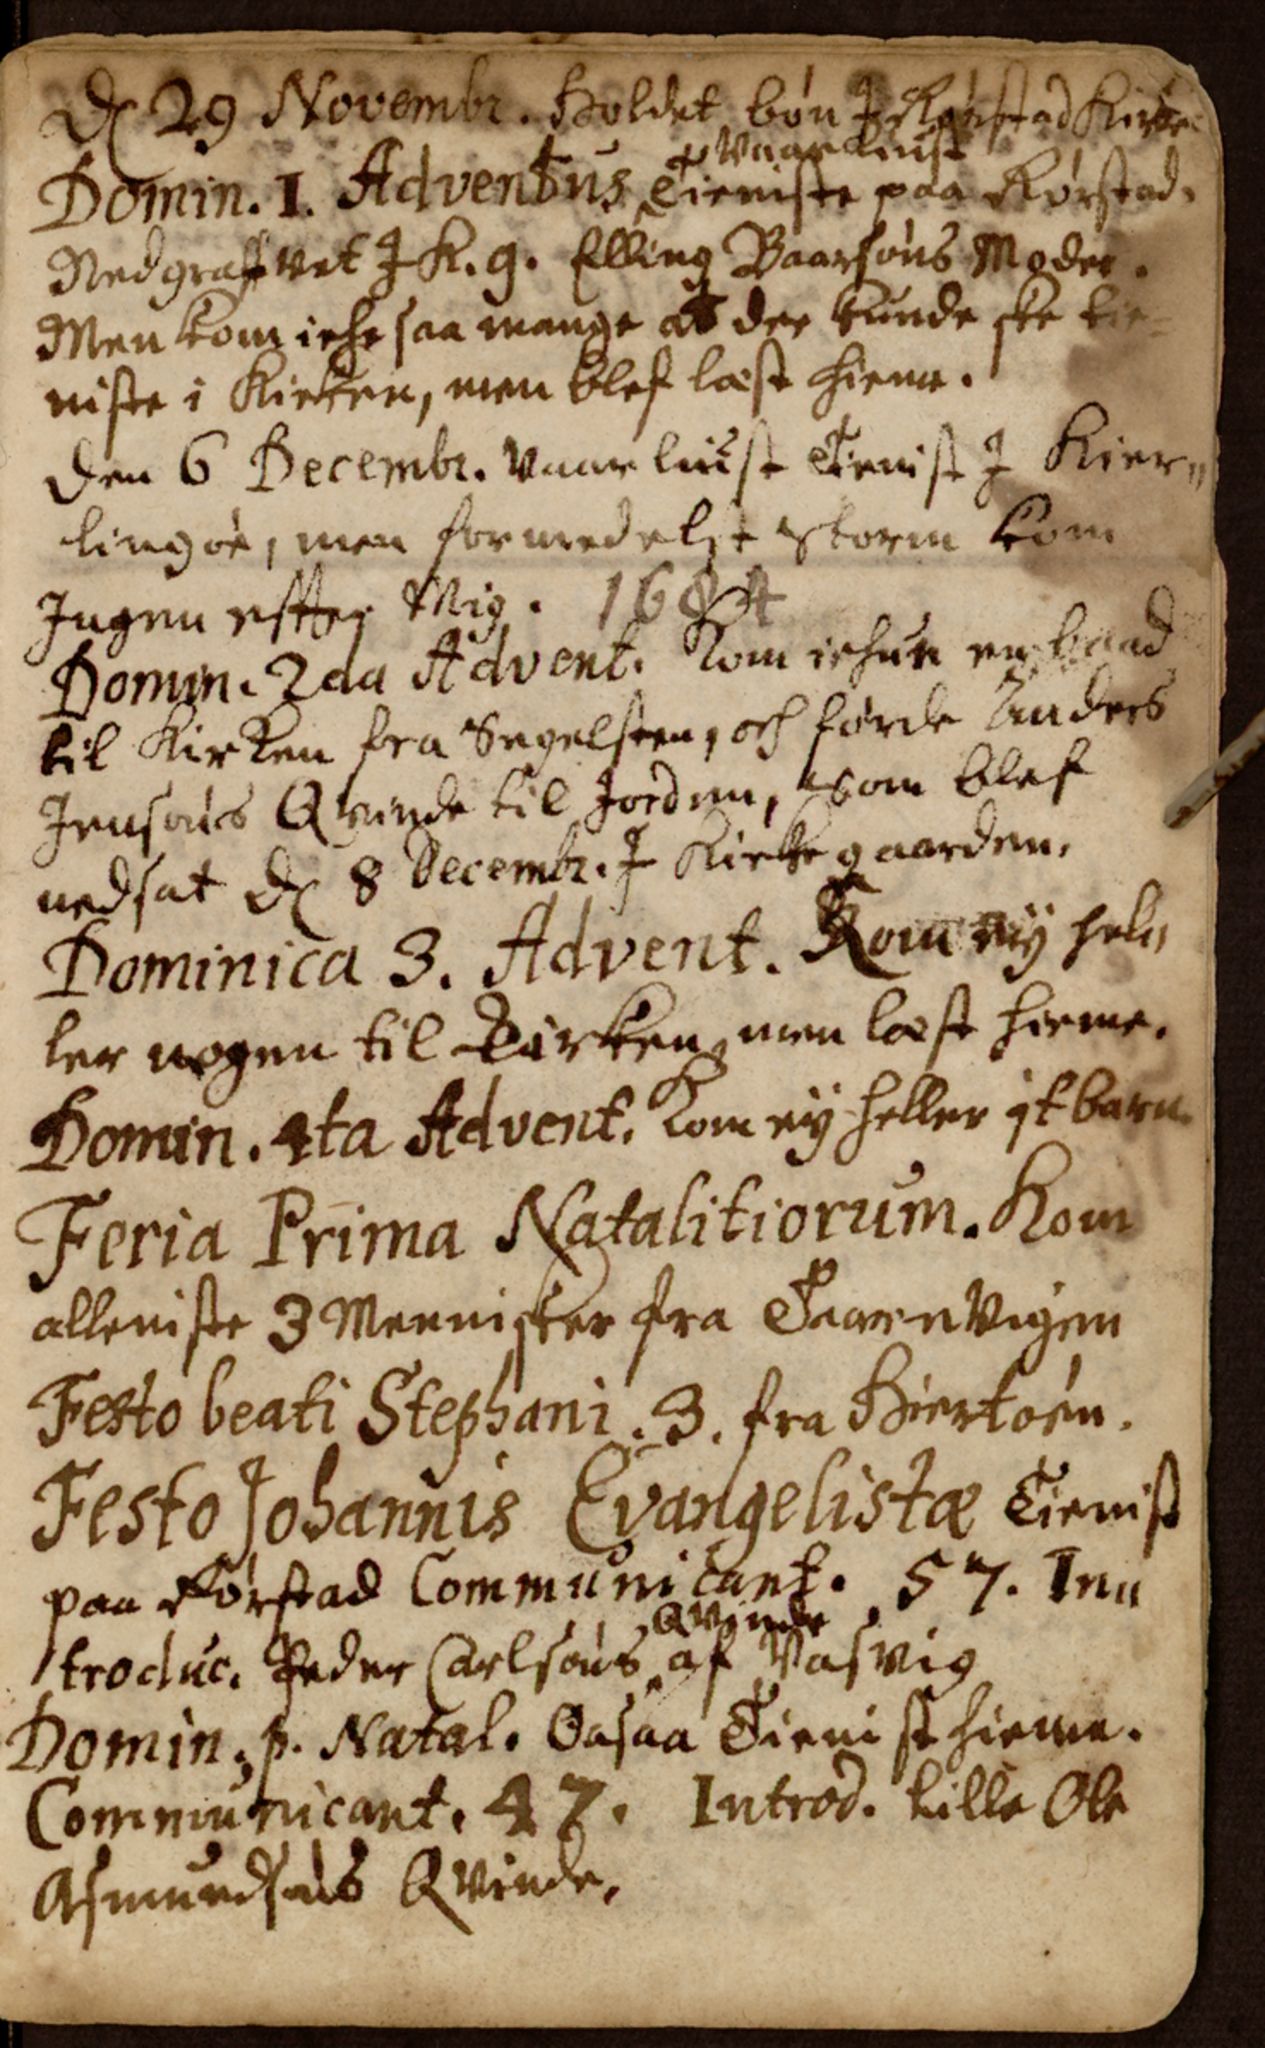 D 29 Novembr. Holdet bøn J Rørstad Kirke
Domin. 1. Adventus Vaar liust Tieniste paa Rørstad.
Nedgrafvet J K. g. Elling Baarsøns Moder.
Men kom icke saa mange at der kunde ske tie-
niste i Kirken, men blef læst hieme.
Den 6 Decembr. Vaar liust Tienist J Kier„
lingøe, men formedelst storm kom
Jngen effter Mig. 1684
Domin. 2da Advent. Kom ickun en baad
til Kirken fra Segelsten, och førde Anders
Jensøns Qvinde til Jorden, som blef
nedsat D 8 Decembr. J Kirkegaarden.
Dominica 3. Advent. Kom eÿ hel„
ler nogen til Kirken, men læst hieme.
Domin. 4ta Advent. Kom eÿ heller it barn.
Feria Prima Natalitiorum. Kom
alleniste 3 Mennisker fra Taarnvigen
Festo beati Stephani. 3. fra Hiertøen.
Festo Johannis Evangelistæ Tienist
paa Rørstad Communicant. 57. In„
troduc. Peder Carlsøns Qvinde af Vasvig
Domin. p. Natal. Ocsaa Tienist hieme.
Communicant. 47. Introd. Lille Ole
Asmundsøns Qvinde.